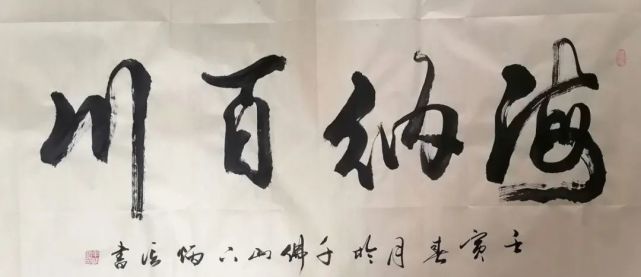 海纳百川
壬寅春月于千佛山下炳
书